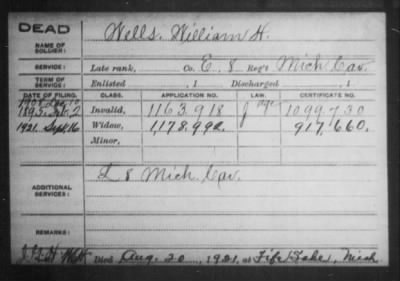 DEAD
NAME OF SOLDIER: Wells, William H.
SERVICE: Late rank, Co. E, 8 Reg't Mich. Cav.
TERM OF SERVICE: Enlisted , 1 Discharged , 1
DATE OF FILING. CLASS. APPLICATION NO. LAW. CERTIFICATE NO.
1895. 2 Invalid, 1163.918 age 1099.730
1921. Sept 16 Widow, 1,178.992. 917.660.
Minor,
ADDITIONAL SERVICES: L 8 Mich. Cav.
REMARKS:
Died Aug. 20, 1921, at Fife Lake, Mich